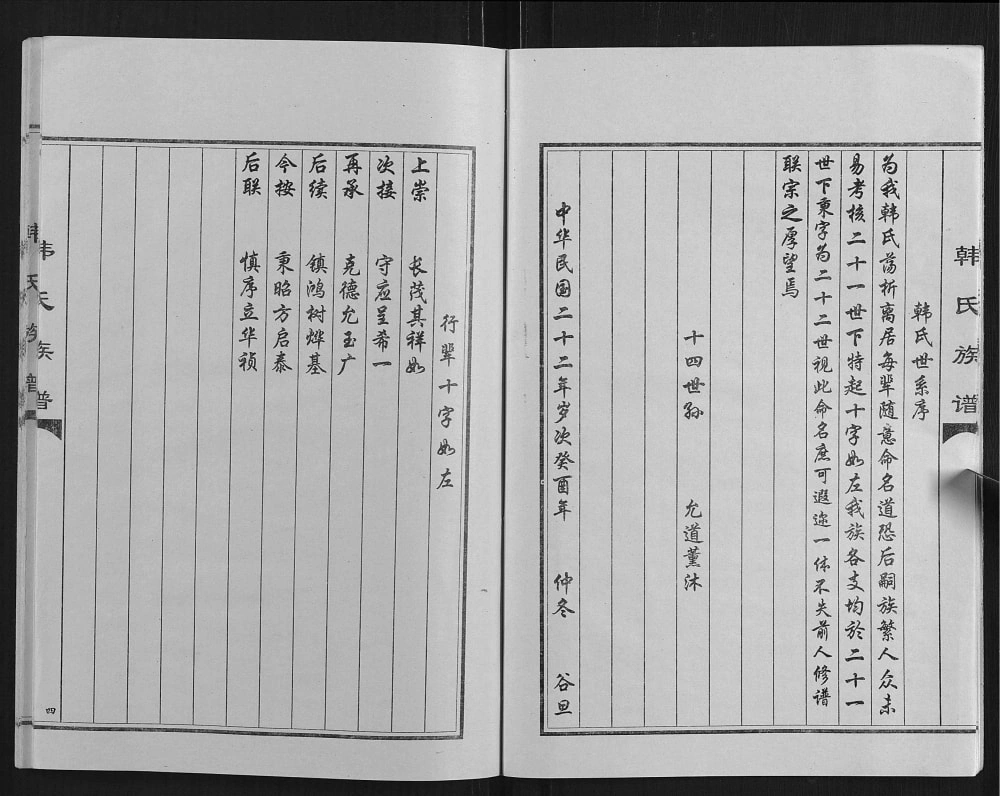 韩氏族谱
韩氏世系序
为我韩氏荡析离居每辈随意命名道恐后嗣族繁人众未
易考核二十一世下特起十字如左我族各支均於二十一
世下秉字为二十二世视此命名庶可遐迩一体不失前人修谱
联宗之厚望焉
十四世孙 允道薰沐
中华民国二十二年岁次癸酉年 仲冬 谷旦
行辈十字如左
上崇 长茂其祥如
次接 守应呈希一
再承 克德允玉广
后续 镇鸿树烨基
今按 秉昭方启泰
后联 慎序立华祯
韩氏族谱
四